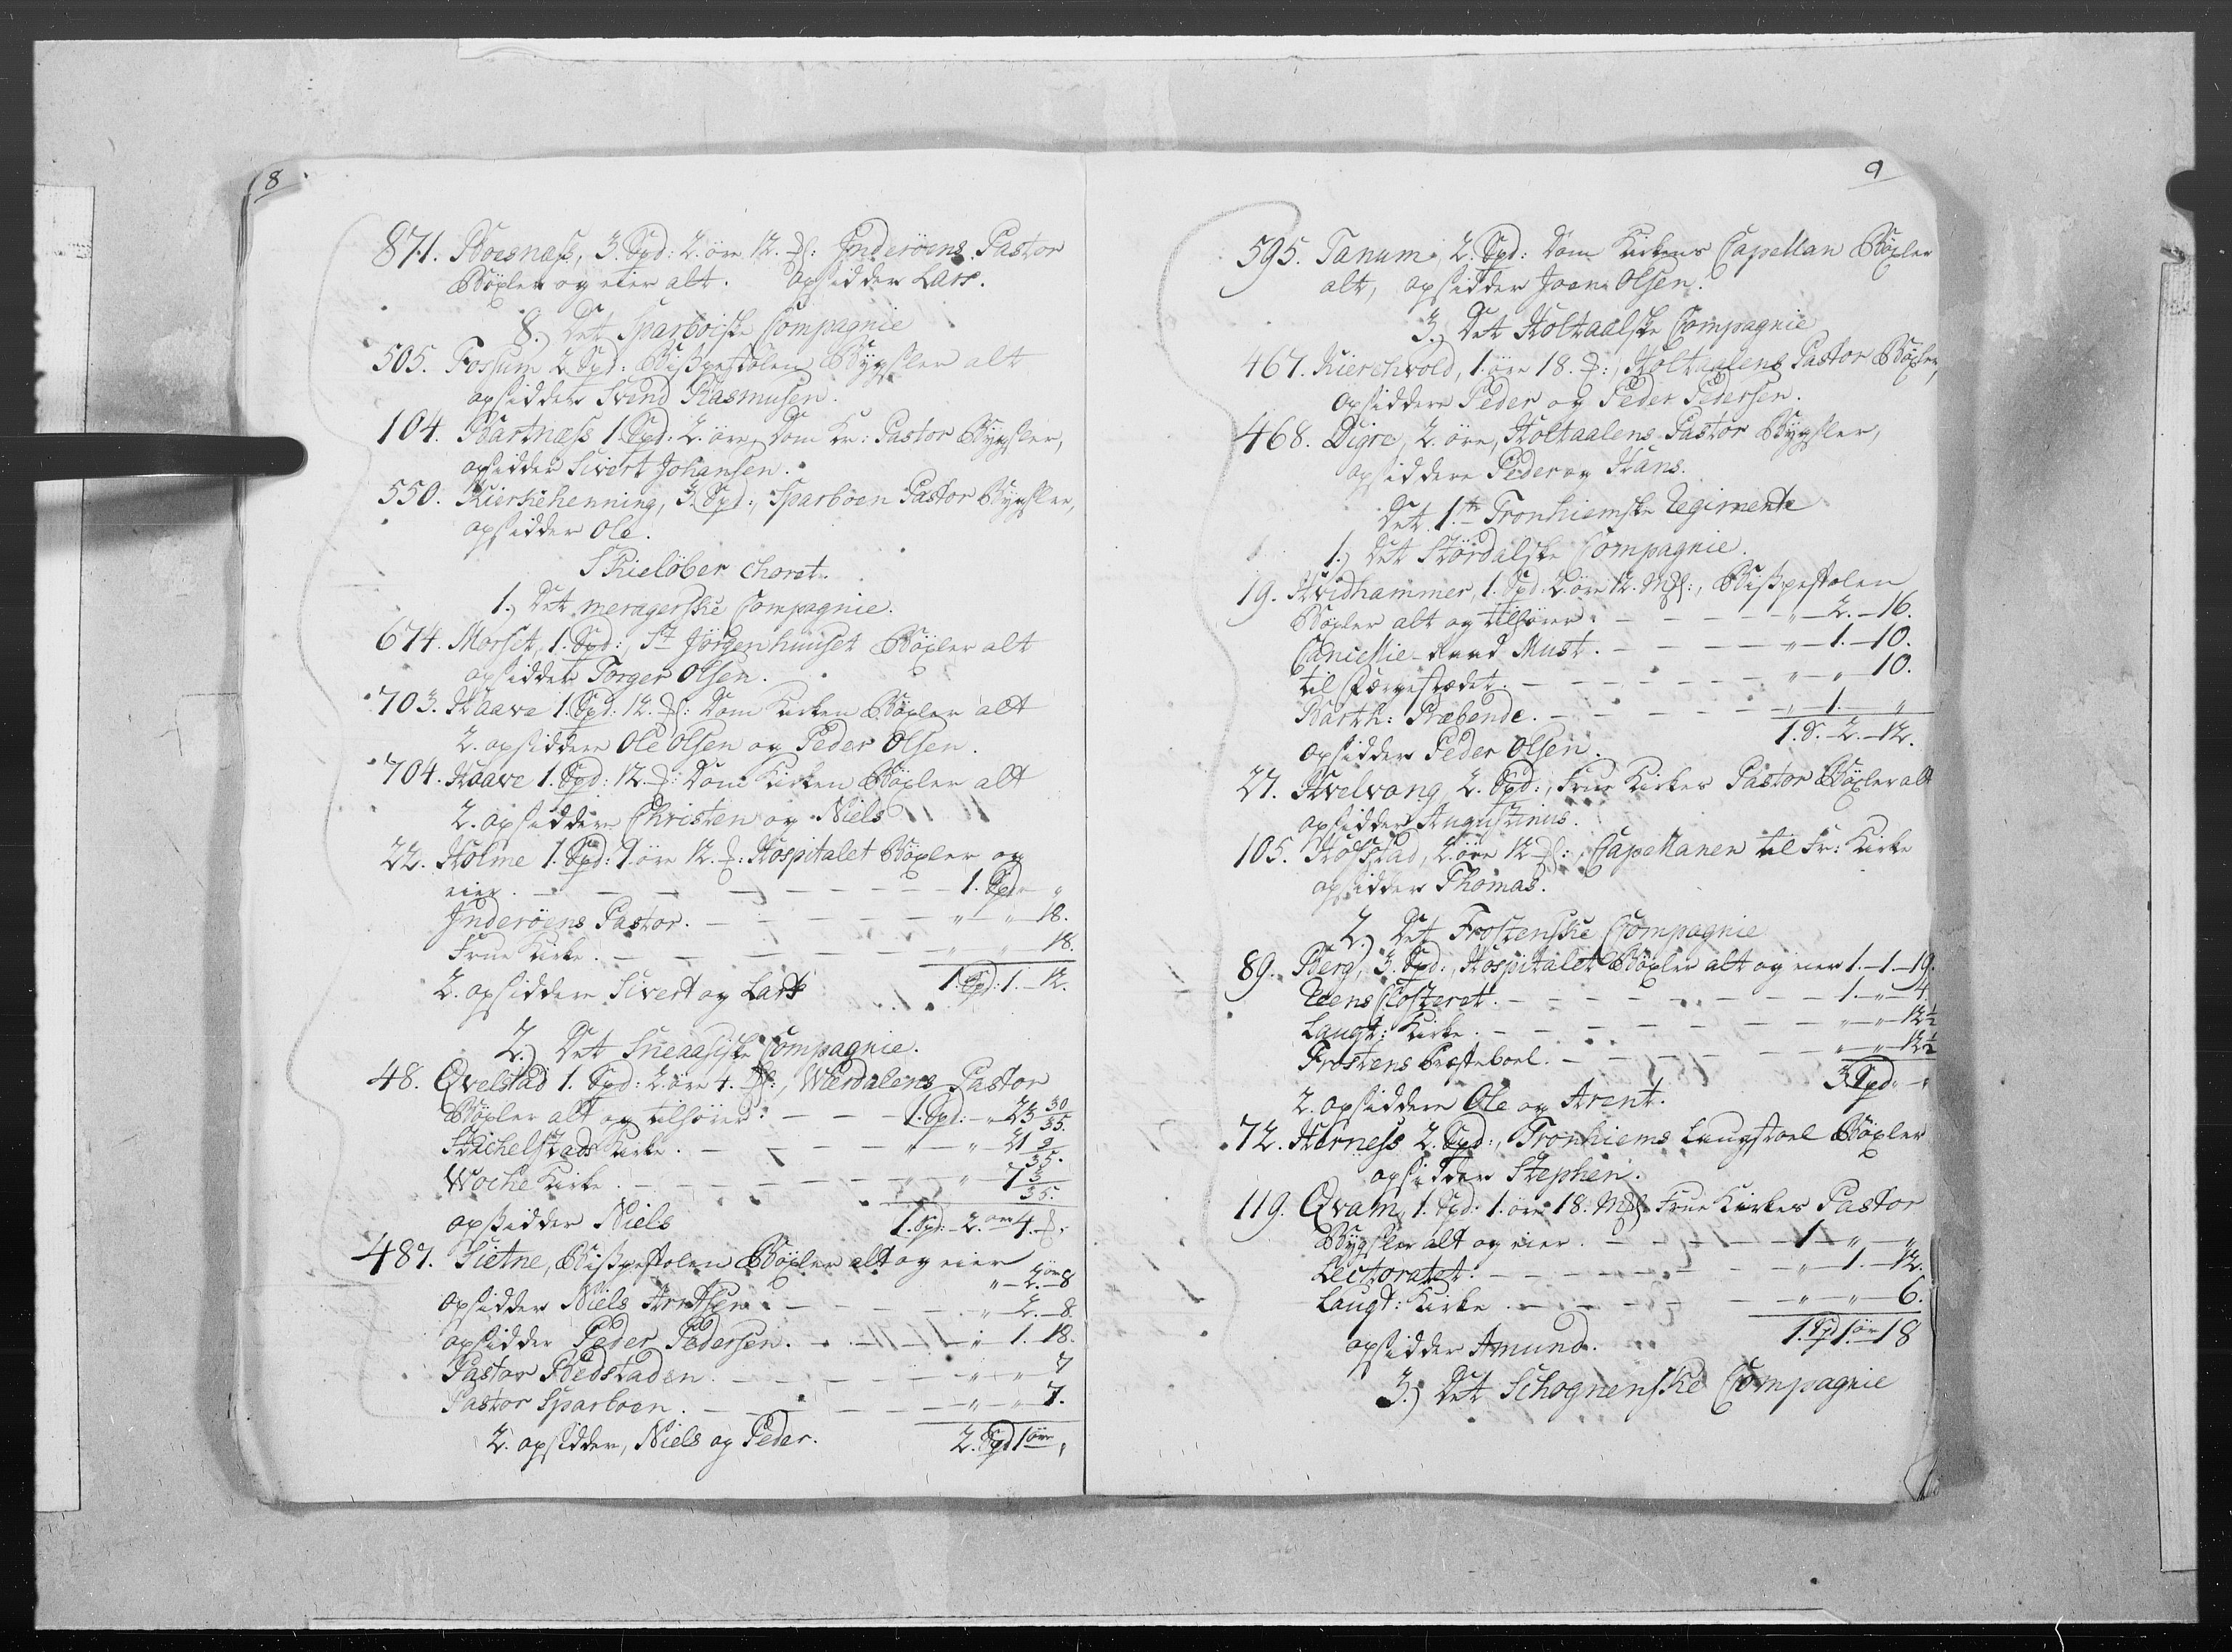 8
871. Boesnæss, 3. Spd: 2. öre 12. Inderöens Pastor
Böxler og eier alt. opsidder Lars.
8.) Det Sparboiske Compagnie
505. Fossum 2 Spd: Bispestolen Bygsler alt
opsidder Svend Rasmusen.
104. Bartnæss 1. Spd: 2. öre, Dom Kr: Pastor Bygsler,
opsidder Sivert Johansen.
550. Kierkehenning, 3. Spd:, Sparboen Pastor Bygsler,
opsidder Ole.
Skielöber Choret.
1.) Det meragerske Compagnie.
674. Morset, 1. Spd:, St Jörgenhuuset Böxler alt
opsidder Torger Olsen.
703. Haave 1. Spd: 12. Dom Kirken Böxler alt
2. opsiddere Ole Olsen og Peder Olsen.
704. Haave 1. Spd: 12. Dom Kirken Böxler alt
2. opsiddere Christen og Niels
22. Holme 1. Spd: 1. öre 12. Hospitalet Böxler og
eier. 1. Spd „
Inderöens Pastor. „ „ 18.
Frue Kirke. „ „ 18.
2. opsiddere Sivert og Lars 1. Spd: 1. 12.
2.) Det Sneaasiske Compagnie.
48. Qvelstad 1. Spd: 2. öre 4., Werdalens Pastor
Böxler alt og tilhörer: 1. Spd: „ 23 30/35.
Stichelstads Kirke. „ „ 21 2/35.
Woche Kirke. „ „ 7 3/35.
opsidder Niels 1. Spd: 2. öre 4.
487. Sietne, Bispestolen Böxler alt og eier
opsidder Niels Arntsen. „ 2. öre 8
„ 2. 8.
opsidder Peder Pedersen. „ 1. 18.
Pastor Bedstaden. „ „ 7
Pastor Sparboen. „ „ 7.
2. opsidder, Niels og Peder. 2. Spd 1 öre „
9
595. Tanum, 2. Spd: Dom Kirkens Capellan Böxler
alt, opsidder Joen Olsen.
3.) Det Holtaalske Compagnie
467. Kierchvold, 1. öre 18., Holtaalens Pastor Böxler,
opsiddere Peder og Peder Pedersen.
468. Digre, 2. öre, Holtaalens Pastor Bygsler,
opsiddere Peder og Hans.
Det 1.te Tronhiemske Regimente
1.) Det Stördalske Compagnie.
19. Hvidhammer, 1. Spd. 2. öre 12. Mel:, Bispestolen
Böxler alt og tilhörer: „ 2. 16.
Cancellie-Raad Must. „ 1. 10.
til Færgestædet. „ „ 10.
Barth: Præbende. „ 1. „
opsidder Peder Olsen. 1. S. 2. 12.
27. Hvelvang 2. Spd:, Frue Kirkes Pastor Böxler alt
opsidder Augustinus.
105. Hofstad, 2. öre 12, Capellanen til Fr: Kirke
opsidder Thomas.
2.) Det Frostenske Compagnie
89. Berg, 3. Spd:, Hospitalet Böxler alt og eier 1. 1. 19.
Reens Closteret. 1. „ 4.
Laugt: Kirke. „ „ 12½
Frostens Præsteboel. „ „ 12½
3 Spd: „
2. opsiddere Ole og Arent.
72. Herness 2. Spd:, Tronhiems Laugstoel Böxler
opsidder Stephen.
119. Qvam, 1. Spd: 1. öre 18. Mel: Frue Kirkes Pastor
Bygsler alt og eier. 1 „ „
Lectoratet. „ 1. 12.
Laugt: Kirke. „ „ 6.
opsidder Amund. 1. Spd 1. öre 18
3.) Det Schognenske Compagnie